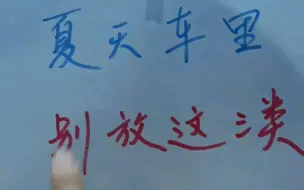 夏天车里
别放这三类